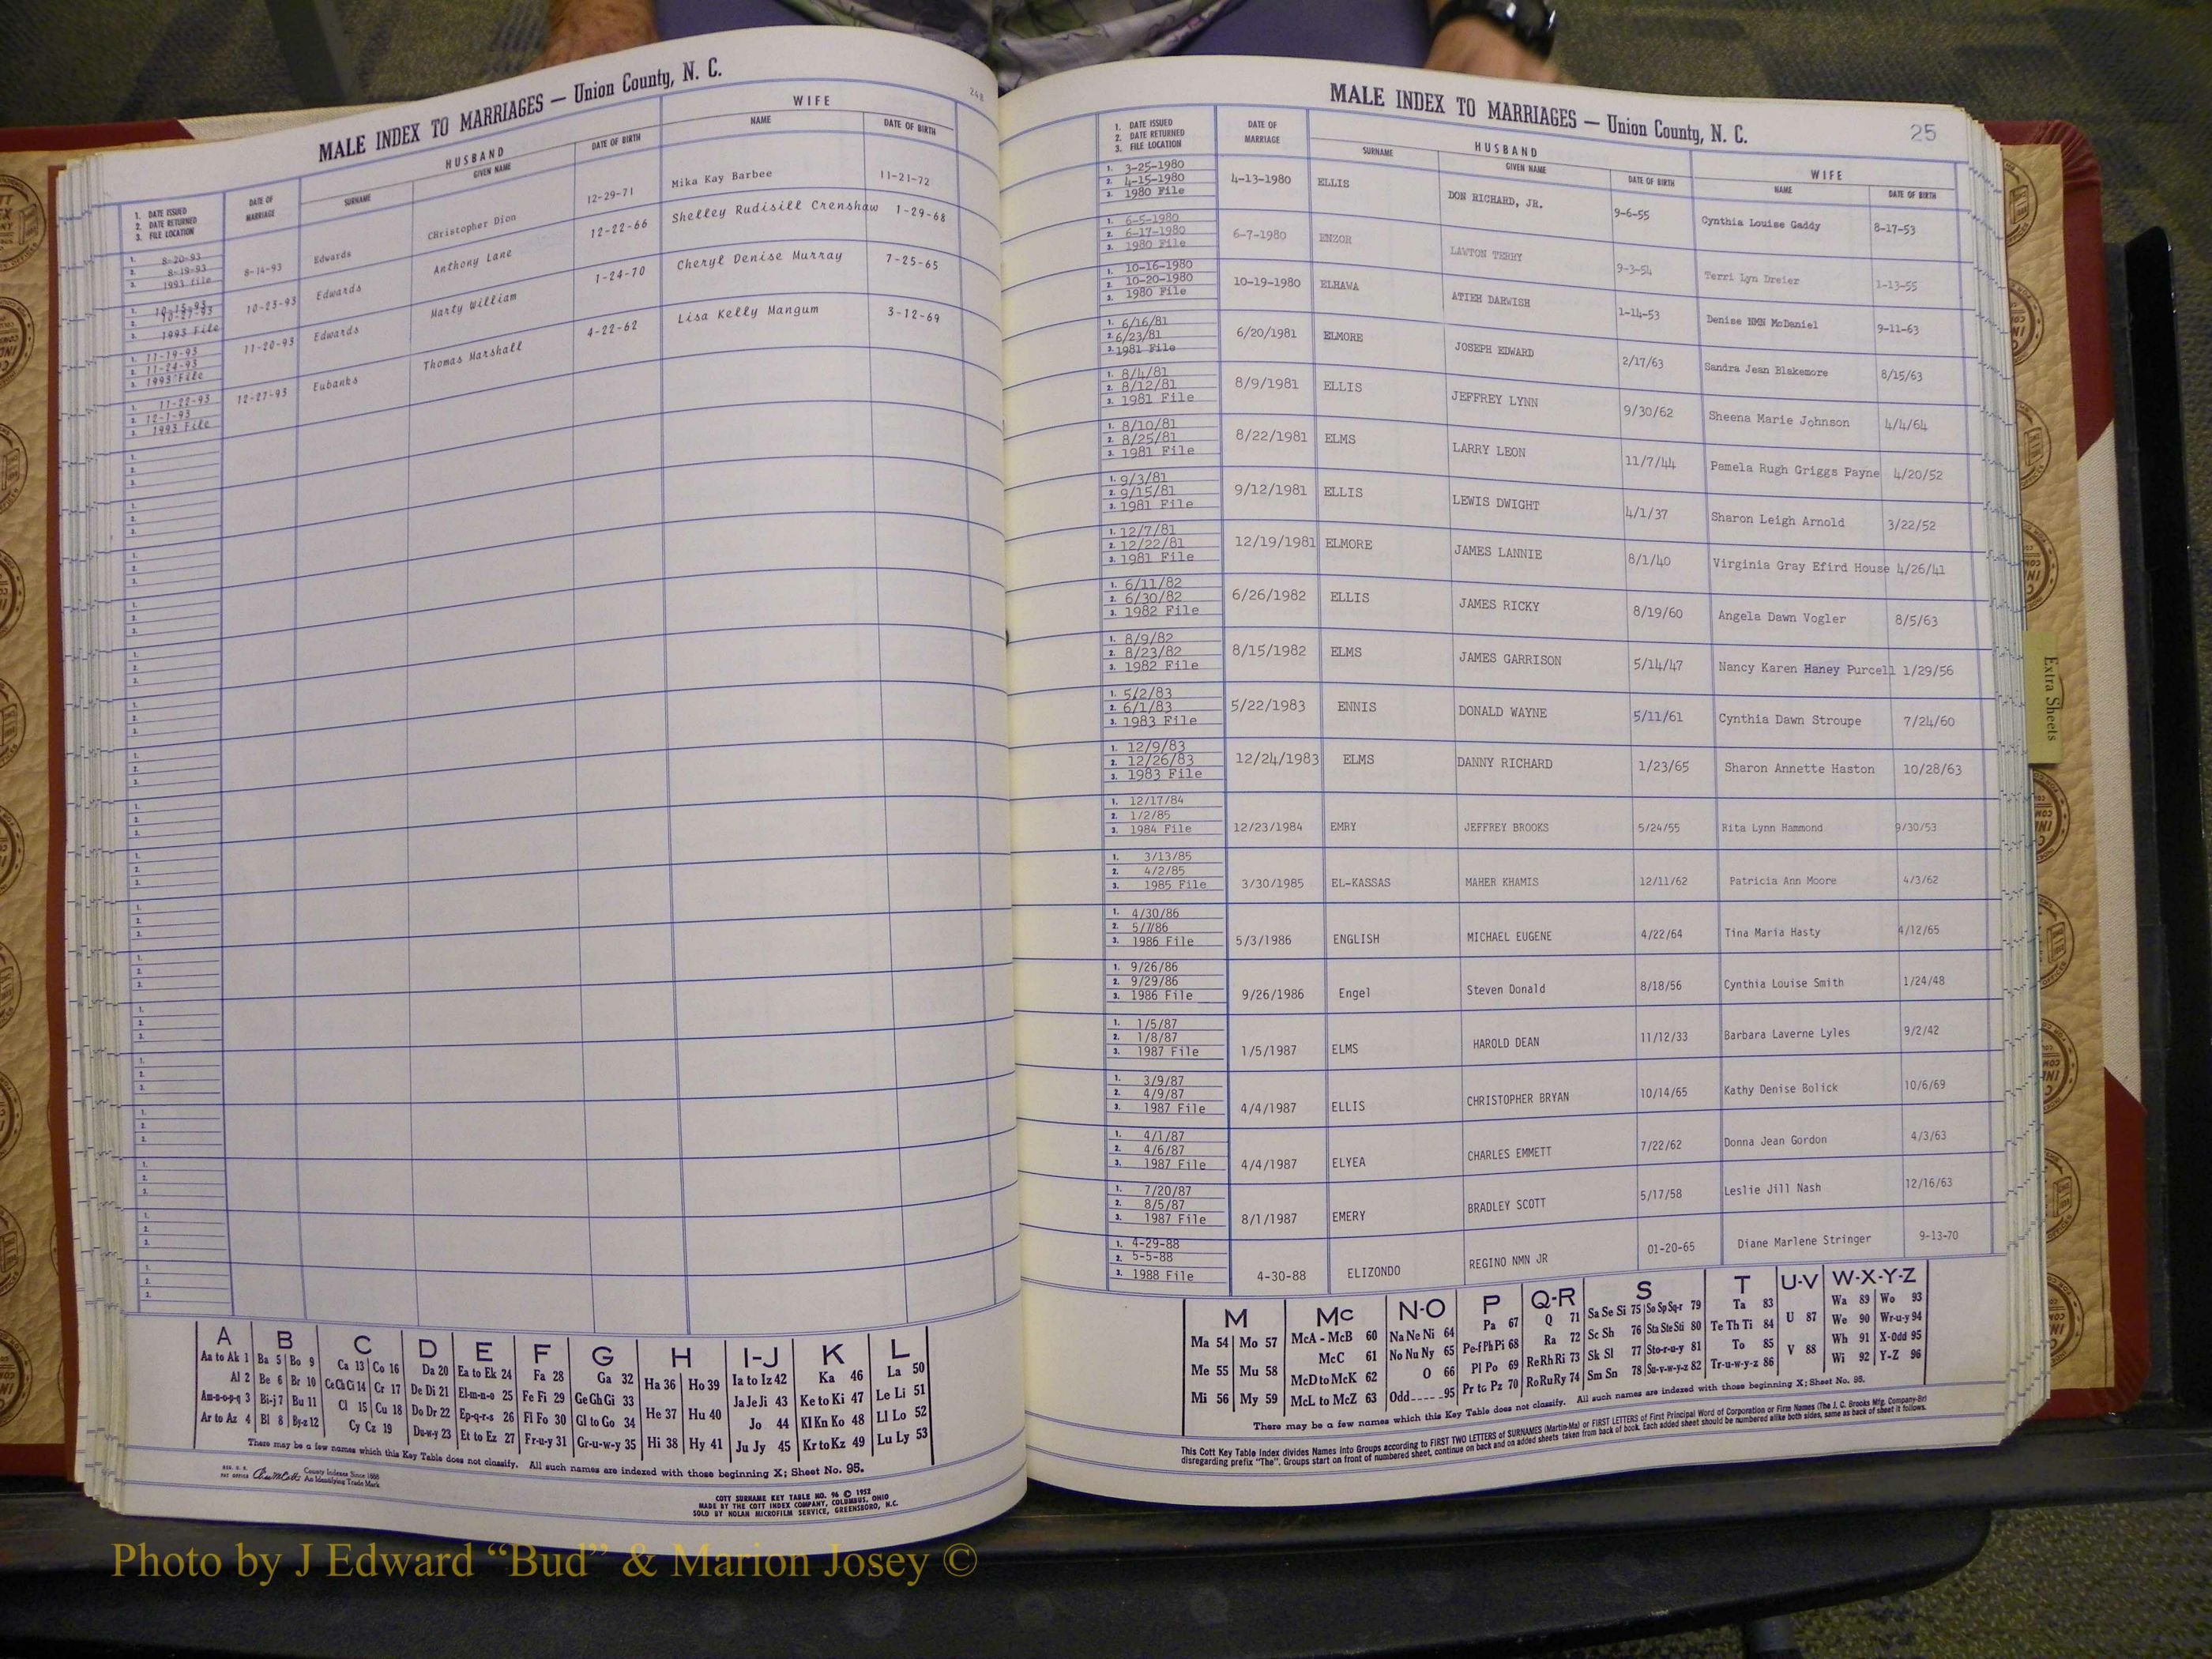 MALE INDEX TO MARRIAGES — Union County, N. C.
24B
HUSBAND WIFE
1. DATE ISSUED
2. DATE RETURNED
3. FILE LOCATION
DATE OF MARRIAGE SURNAME GIVEN NAME DATE OF BIRTH NAME DATE OF BIRTH
1. 8-20-93
2. 8-19-93
3. 1993 file
8-14-93 Edwards CHristopher Dion 12-29-71 Mika Kay Barbee 11-21-72
1. 10-15-93
2. 10-27-93
3. 1993 File
10-23-93 Edwards Anthony Lane 12-22-66 Shelley Rudisill Crenshaw 1-29-68
1. 11-19-93
2. 11-24-93
3. 1993 File
11-20-93 Edwards Marty William 1-24-70 Cheryl Denise Murray 7-25-65
1. 11-22-93
2. 12-1-93
3. 1993 File
12-27-93 Eubanks Thomas Marshall 4-22-62 Lisa Kelly Mangum 3-12-69
A B C D E F G H I-J K L
Aa to Ak 1 Ba 5 Bo 9 Ca 13 Co 16 Da 20 Ea to Ek 24 Fa 28 Ga 32 Ha 36 Ho 39 Ia to Iz 42 Ka 46 La 50
Al 2 Be 6 Br 10 Ce Ch Ci 14 Cr 17 De Di 21 El-m-n-o 25 Fe Fi 29 Ge Gh Gi 33 He 37 Hu 40 Ja Je Ji 43 Ke to Ki 47 Le Li 51
Am-n-o-p-q 3 Bi-j 7 Bu 11 Cl 15 Cu 18 Do Dr 22 Ep-q-r-s 26 Fl Fo 30 Gl to Go 34 Hi 38 Hy 41 Jo 44 Kl Kn Ko 48 Ll Lo 52
Ar to Az 4 Bl 8 By-z 12 Cy Cz 19 Du-w-y 23 Et to Ez 27 Fr-u-y 31 Gr-u-w-y 35 Ju Jy 45 Kr to Kz 49 Lu Ly 53
There may be a few names which this Key Table does not classify. All such names are indexed with those beginning X; Sheet No. 95.
County Indexes Since 1888
An Identifying Trade Mark
COTT SURNAME KEY TABLE NO. 96 © 1952
MADE BY THE COTT INDEX COMPANY, COLUMBUS, OHIO
SOLD BY NOLAN MICROFILM SERVICE, GREENSBORO, N.C.
MALE INDEX TO MARRIAGES — Union County, N. C.
25
HUSBAND WIFE
1. DATE ISSUED
2. DATE RETURNED
3. FILE LOCATION
DATE OF MARRIAGE SURNAME GIVEN NAME DATE OF BIRTH NAME DATE OF BIRTH
1. 3-25-1980
2. 4-15-1980
3. 1980 File
4-13-1980 ELLIS DON RICHARD, JR. 9-6-55 Cynthia Louise Gaddy 8-17-53
1. 6-5-1980
2. 6-17-1980
3. 1980 File
6-7-1980 ENZOR LAWTON TERRY 9-3-54 Terri Lyn Dreier 1-13-55
1. 10-16-1980
2. 10-20-1980
3. 1980 File
10-19-1980 ELHAWA ATIEH DARWISH 1-14-53 Denise NMN McDaniel 9-11-63
1. 6/16/81
2. 6/23/81
3. 1981 File
6/20/1981 ELMORE JOSEPH EDWARD 2/17/63 Sandra Jean Blakemore 8/15/63
1. 8/4/81
2. 8/12/81
3. 1981 File
8/9/1981 ELLIS JEFFREY LYNN 9/30/62 Sheena Marie Johnson 4/4/64
1. 8/10/81
2. 8/25/81
3. 1981 File
8/22/1981 ELMS LARRY LEON 11/7/44 Pamela Rugh Griggs Payne 4/20/52
1. 9/3/81
2. 9/15/81
3. 1981 File
9/12/1981 ELLIS LEWIS DWIGHT 4/1/37 Sharon Leigh Arnold 3/22/52
1. 12/7/81
2. 12/22/81
3. 1981 File
12/19/1981 ELMORE JAMES LANNIE 8/1/40 Virginia Gray Efird House 4/26/41
1. 6/11/82
2. 6/30/82
3. 1982 File
6/26/1982 ELLIS JAMES RICKY 8/19/60 Angela Dawn Vogler 8/5/63
1. 8/9/82
2. 8/23/82
3. 1982 File
8/15/1982 ELMS JAMES GARRISON 5/14/47 Nancy Karen Haney Purcell 1/29/56
1. 5/2/83
2. 6/1/83
3. 1983 File
5/22/1983 ENNIS DONALD WAYNE 5/11/61 Cynthia Dawn Stroupe 7/24/60
1. 12/9/83
2. 12/26/83
3. 1983 File
12/24/1983 ELMS DANNY RICHARD 1/23/65 Sharon Annette Haston 10/28/63
1. 12/17/84
2. 1/2/85
3. 1984 File
12/23/1984 EMRY JEFFREY BROOKS 5/24/55 Rita Lynn Hammond 9/30/53
1. 3/13/85
2. 4/2/85
3. 1985 File
3/30/1985 EL-KASSAS MAHER KHAMIS 12/11/62 Patricia Ann Moore 4/3/62
1. 4/30/86
2. 5/7/86
3. 1986 File
5/3/1986 ENGLISH MICHAEL EUGENE 4/22/64 Tina Maria Hasty 4/12/65
1. 9/26/86
2. 9/29/86
3. 1986 File
9/26/1986 Engel Steven Donald 8/18/56 Cynthia Louise Smith 1/24/48
1. 1/5/87
2. 1/8/87
3. 1987 File
1/5/1987 ELMS HAROLD DEAN 11/12/33 Barbara Laverne Lyles 9/2/42
1. 3/9/87
2. 4/9/87
3. 1987 File
4/4/1987 ELLIS CHRISTOPHER BRYAN 10/14/65 Kathy Denise Bolick 10/6/69
1. 4/1/87
2. 4/6/87
3. 1987 File
4/4/1987 ELYEA CHARLES EMMETT 7/22/62 Donna Jean Gordon 4/3/63
1. 7/20/87
2. 8/5/87
3. 1987 File
8/1/1987 EMERY BRADLEY SCOTT 5/17/58 Leslie Jill Nash 12/16/63
1. 4-29-88
2. 5-5-88
3. 1988 File
4-30-88 ELIZONDO REGINO NMN JR 01-20-65 Diane Marlene Stringer 9-13-70
M Mc N-O P Q-R S T U-V W-X-Y-Z
Ma 54 Mo 57 McA - McB 60 Na Ne Ni 64 Pa 67 Q 71 Sa Se Si 75 So Sp Sq-r 79 Ta 83 U 87 Wa 89 Wo 93
Me 55 Mu 58 McC 61 No Nu Ny 65 Pe-f Ph Pi 68 Ra 72 Sc Sh 76 Sta Ste Sti 80 Te Th Ti 84 V 88 We 90 Wr-u-y 94
Mi 56 My 59 McD to McK 62 O 66 Pl Po 69 Re Rh Ri 73 Sk Sl 77 Sto-r-u-y 81 To 85 Wh 91 X-Odd 95
McL to McZ 63 Odd 95 Pr to Pz 70 Ro Ru Ry 74 Sm Sn 78 Su-v-w-y-z 82 Tr-u-w-y-z 86 Wi 92 Y-Z 96
There may be a few names which this Key Table does not classify. All such names are indexed with those beginning X; Sheet No. 95.
This Cott Key Table Index divides Names into Groups according to FIRST TWO LETTERS of SURNAMES (Martin-Ma) or FIRST LETTERS of First Principal Word of Corporation or Firm Names (The J. C. Brooks Mfg. Company-Br)
disregarding prefix "The". Groups start on front of numbered sheet, continue on back and on added sheets taken from back of book. Each added sheet should be numbered alike both sides, same as back of sheet it follows.
Extra Sheets
Photo by J Edward “Bud” & Marion Josey ©